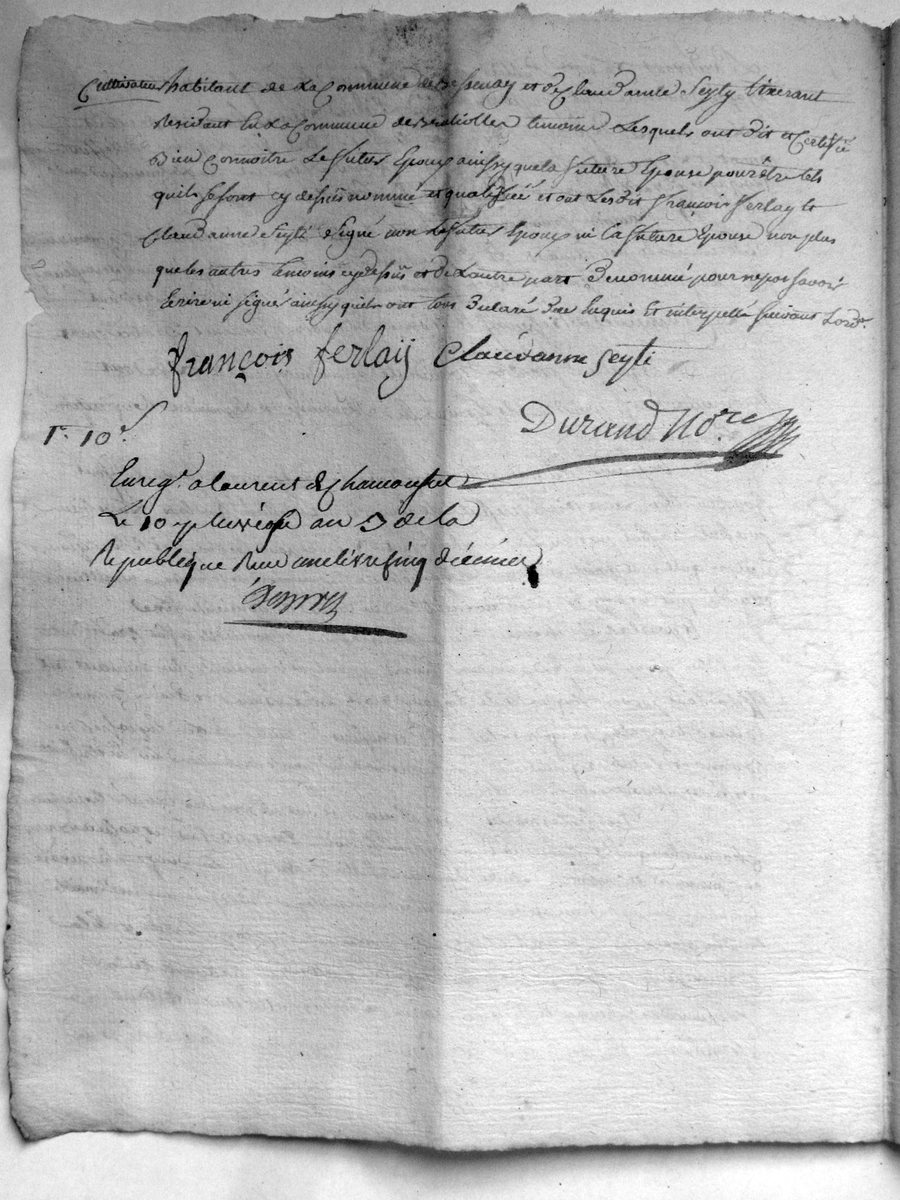 Cultivateur habitant de La Commune de Bessenay et de Claud'anne Seyty tixerant
Residant en La Commune de temoins Lesquels ont dit et Certifié
bien Connoitre Le futur Epoux ainsy que la future Epouse pour être tels
quils se sont cy dessus nommé et qualifiéé et ont Lesdit françois ferlay et
Claud'anne Seyté signé non Le futur Epoux ni La future Epouse non plus
que les autres temoins cy dessus et de Lautre part Denommé pour ne pas savoir
Ecrire ni signé ainsy quils ont tous Declaré De ce Enquis Et interpellé suivant Lord.e
françois ferlaÿ Claudanne Seyti
Durand No.re
1.r 10.s
Enreg.é a Laurent de Chamousset
Le 10 pluviose an 5 de la
Republique Recu livres cinq decimes